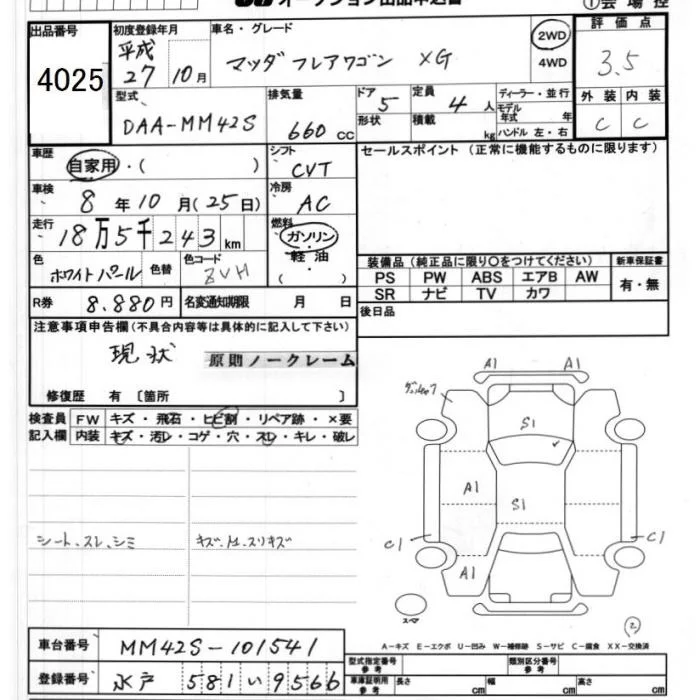 オークション出品申込書 ①会場控
出品番号 初度登録年月 車名・グレード 2WD 評価点
4025 平成 27 10月 マツダ フレアワゴン XG 4WD 3.5
型式 排気量 ドア 5 定員 4人 ディーラー・並行 外装 内装
DAA-MM42S 660cc 形状 積載 kg モデル年式 年 ハンドル 左・右 C C
車歴 自家用・( ) シフト CVT セールスポイント (正常に機能するものに限ります)
車検 8年10月(25日) 冷房 AC
走行 18万5千243km 燃料 ガソリン・軽油・( )
色 ホワイトパール 色替 色コード ZVH 装備品 (純正品に限り〇をつけてください) 新車保証書
PS PW ABS エアB AW 有・無
SR ナビ TV カワ
R券 8.880円 名変通知期限 月 日 後日品
注意事項申告欄 (不具合内容等は具体的に記入して下さい)
現状 原則ノークレーム
修復歴 有 〔箇所 〕
検査員 FW キズ・飛石・ヒビ割・リペア跡・×要
記入欄 内装 キズ・汚レ・コゲ・穴・スレ・キレ・破レ
シート、スレ、シミ
A1 A1
S1
A1 S1
C1 C1
A1
スマ
②
A-キズ E-エクボ U-凹み W-補修跡 S-サビ C-腐食 XX-交換済
車台番号 MM42S-101541 型式指定番号 参考 類別区分番号 参考
登録番号 水戸 581 い 9566 車庫証明用 参考 長さ cm 幅 cm 高さ cm